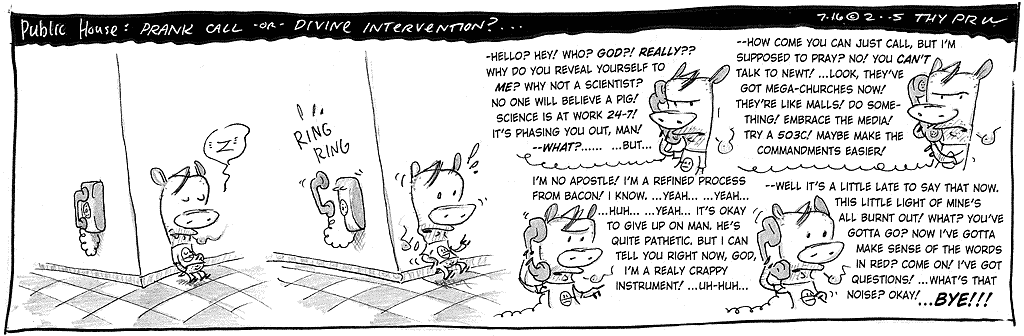 Public House: PRANK CALL -OR- DIVINE INTERVENTION?...
7-16 © 2--5 THY PRU
Z
RING
RING
-HELLO? HEY! WHO? GOD?! REALLY??
WHY DO YOU REVEAL YOURSELF TO
ME? WHY NOT A SCIENTIST?
NO ONE WILL BELIEVE A PIG!
SCIENCE IS AT WORK 24-7!
IT'S PHASING YOU OUT, MAN!
--WHAT?...... ...BUT...
--HOW COME YOU CAN JUST CALL, BUT I'M
SUPPOSED TO PRAY? NO! YOU CAN'T
TALK TO NEWT! ...LOOK, THEY'VE
GOT MEGA-CHURCHES NOW!
THEY'RE LIKE MALLS! DO SOME-
THING! EMBRACE THE MEDIA!
TRY A 503C! MAYBE MAKE THE
COMMANDMENTS EASIER!
I'M NO APOSTLE! I'M A REFINED PROCESS
FROM BACON! I KNOW. ...YEAH... ...YEAH...
...HUH... ...YEAH... IT'S OKAY
TO GIVE UP ON MAN. HE'S
QUITE PATHETIC. BUT I CAN
TELL YOU RIGHT NOW, GOD,
I'M A REALY CRAPPY
INSTRUMENT! ...UH-HUH...
--WELL IT'S A LITTLE LATE TO SAY THAT NOW.
THIS LITTLE LIGHT OF MINE'S
ALL BURNT OUT! WHAT? YOU'VE
GOTTA GO? NOW I'VE GOTTA
MAKE SENSE OF THE WORDS
IN RED? COME ON! I'VE GOT
QUESTIONS! ...WHAT'S THAT
NOISE? OKAY! ...BYE!!!